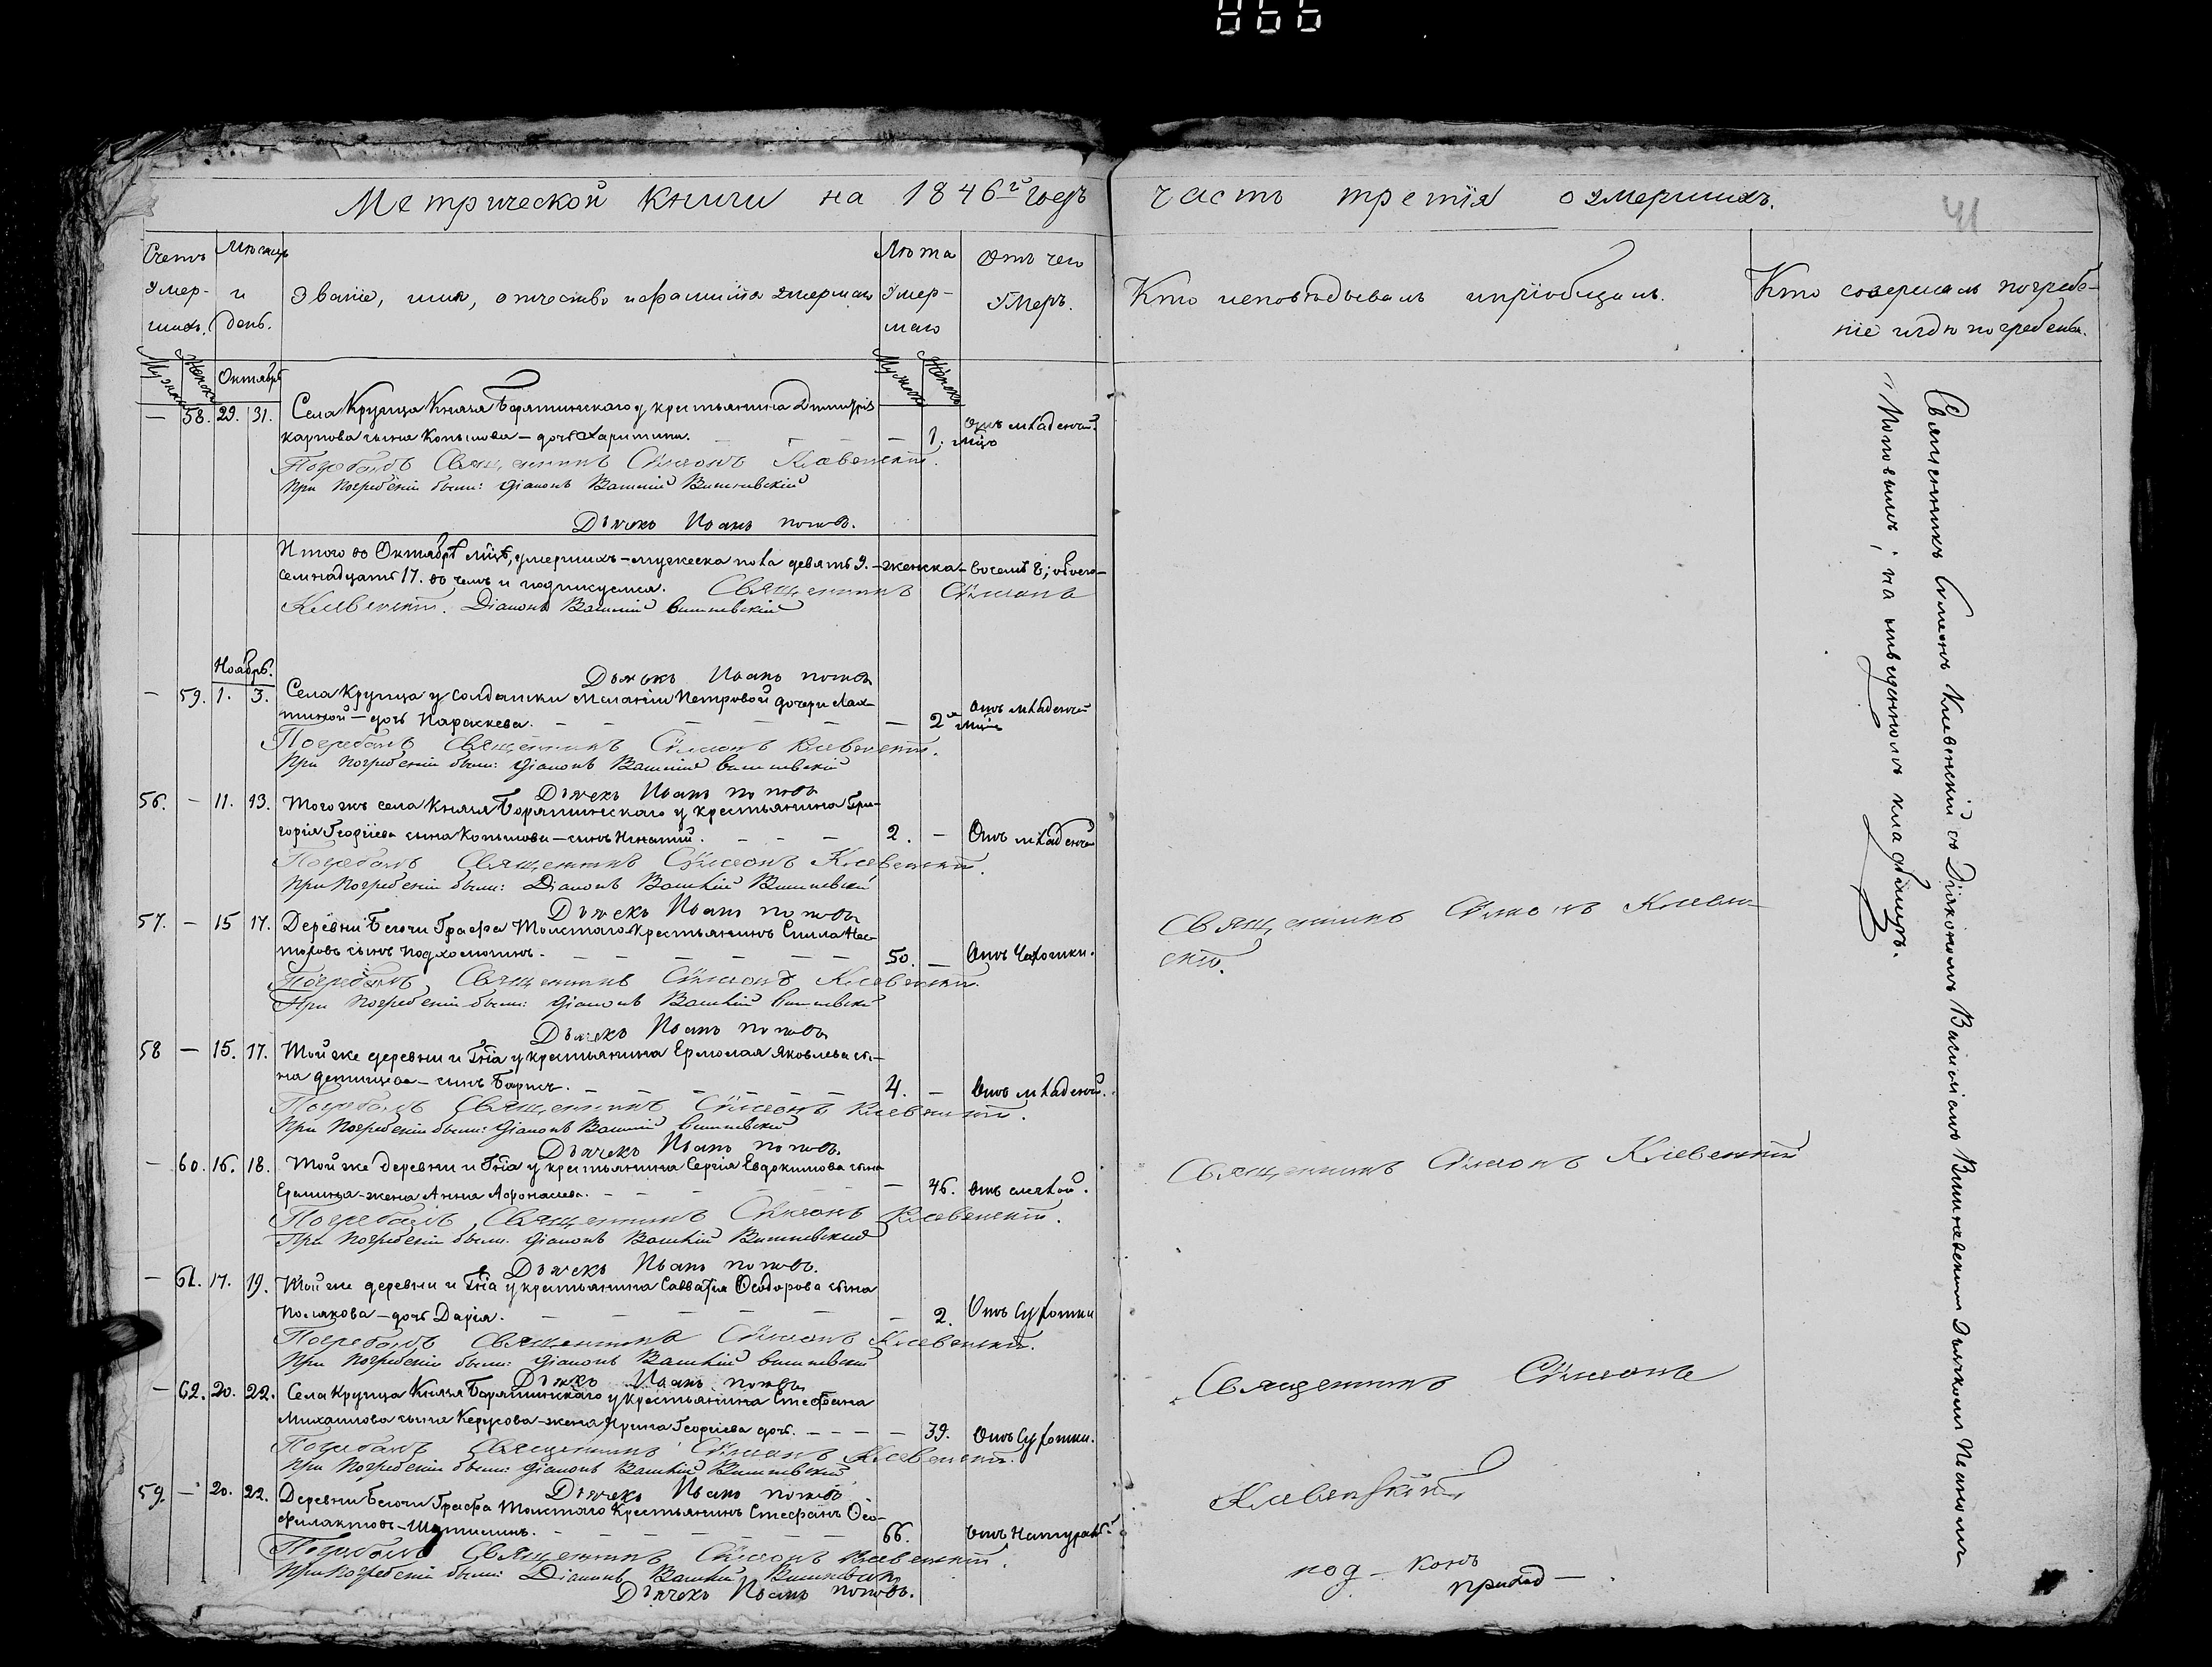 066
Метрической книги на 1846й годъ часть третія о умершихъ.
41
Счетъ умершихъ.
Мѣсяцъ и день.
Званіе, имя, отчество и фамилія умершаго
Лѣта умершаго
Отъ чего умеръ.
Кто исповѣдывалъ и пріобщалъ.
Кто совершалъ погребеніе и гдѣ погребены.
Мужеск Женск
Октябрь
Мужеск Женск
— 58. 29. 31. Села Крупца Князя Барятинскаго у крестьянина Димитрія
Карпова сына Копылова — дочь Харитина. — 1. мцо Отъ младенчй.
Погребалъ Священникъ Сѵмеонъ Клевенскій.
При погребеніи были: Діаконъ Василій Вишневскій
Дьячекъ Иванъ Поповъ.
Итого въ Октябрѣ мцѣ, умершихъ — мужеска пола девять 9. — женска — восемь 8; обоего —
семнадцать 17. въ чемъ и подпишемся. Священникъ Сѵмеонъ
Клевенскій. Діаконъ Василій Вишневскій
Дьячекъ Иванъ Поповъ
Ноябрь.
— 59. 1. 3. Села Крупца у солдатки Меланіи Петровой дочери
дочь Параскева. — 2 Отъ младенчей
Погребалъ Священникъ Сѵмеонъ Клевенскій.
При погребеніи были: Діаконъ Василій Вишневскій
Дьячекъ Иванъ Поповъ
56. — 11. 13. Того жъ села Князя Барятинскаго у крестьянина Гри-
горія Георгіева сына Копылова — сынъ Игнатій. 2. — Отъ младенчей
Погребалъ Священникъ Сѵмеонъ Клевенскій.
При погребеніи были: Діаконъ Василій Вишневскій
Дьячекъ Иванъ Поповъ
57. — 15 17. Деревни Бегочи Графа Толстаго Крестьянинъ Силла Нес-
торовъ сынъ Подхомогинъ. 50. — Отъ Чахотки.
Священникъ Сѵмеонъ Клевен-
скій.
Погребалъ Священникъ Сѵмеонъ Клевенскій.
При погребеніи были: Діаконъ Василій Вишневскій
Дьячекъ Иванъ Поповъ
58 — 15. 17. Той же деревни и Гна у крестьянина Ермолая Яковлева сы-
на — сынъ Борисъ. 4. — Отъ младенчй.
Погребалъ Священникъ Сѵмеонъ Клевенскій.
При погребеніи были: Діаконъ Василій Вишневскій
Дьячекъ Иванъ Поповъ.
— 60. 16. 18. Той же деревни и Гна у крестьянина Сергія Евдокимова сына
Ерлинца — жена Анна Афонасьева. — 46. Отъ
Священникъ Сѵмеонъ Клевенскій
Погребалъ Священникъ Сѵмеонъ Клевенскій.
При погребеніи были: Діаконъ Василій Вишневскій
Дьячекъ Иванъ Поповъ.
— 61. 17. 19. Той же деревни и Гна у крестьянина Савватія Ѳеодорова сына
Полякова — дочь Дарія. — 2. Отъ Сухотки
Погребалъ Священникъ Сѵмеонъ Клевенскій.
При погребеніи были: Діаконъ Василій Вишневскій
Дьячекъ Иванъ Поповъ
— 62. 20. 22. Села Крупца Князя Барятинскаго у крестьянина Стефана
Михаилова сына Керусова — жена Ирина Георгіева дочь. — 39. Отъ Сухотки.
Священникъ Сѵмеонъ
Клевенскій
Погребалъ Священникъ Сѵмеонъ Клевенскій.
При погребеніи были: Діаконъ Василій Вишневскій
Дьячекъ Иванъ Поповъ
59. — 20. 22. Деревни Бегочи Графа Толстаго Крестьянинъ Стефанъ Ѳео-
филактовъ — 66. Отъ Натуральн.
Погребалъ Священникъ Сѵмеонъ Клевенскій.
При погребеніи были: Діаконъ Василій Вишневскій
Дьячекъ Иванъ Поповъ.
Священникъ Сѵмеонъ Клевенскій съ Діакономъ Василіемъ Вишневскимъ Дьячкомъ Иваномъ
Поповымъ; на отведенномъ кладбищѣ.